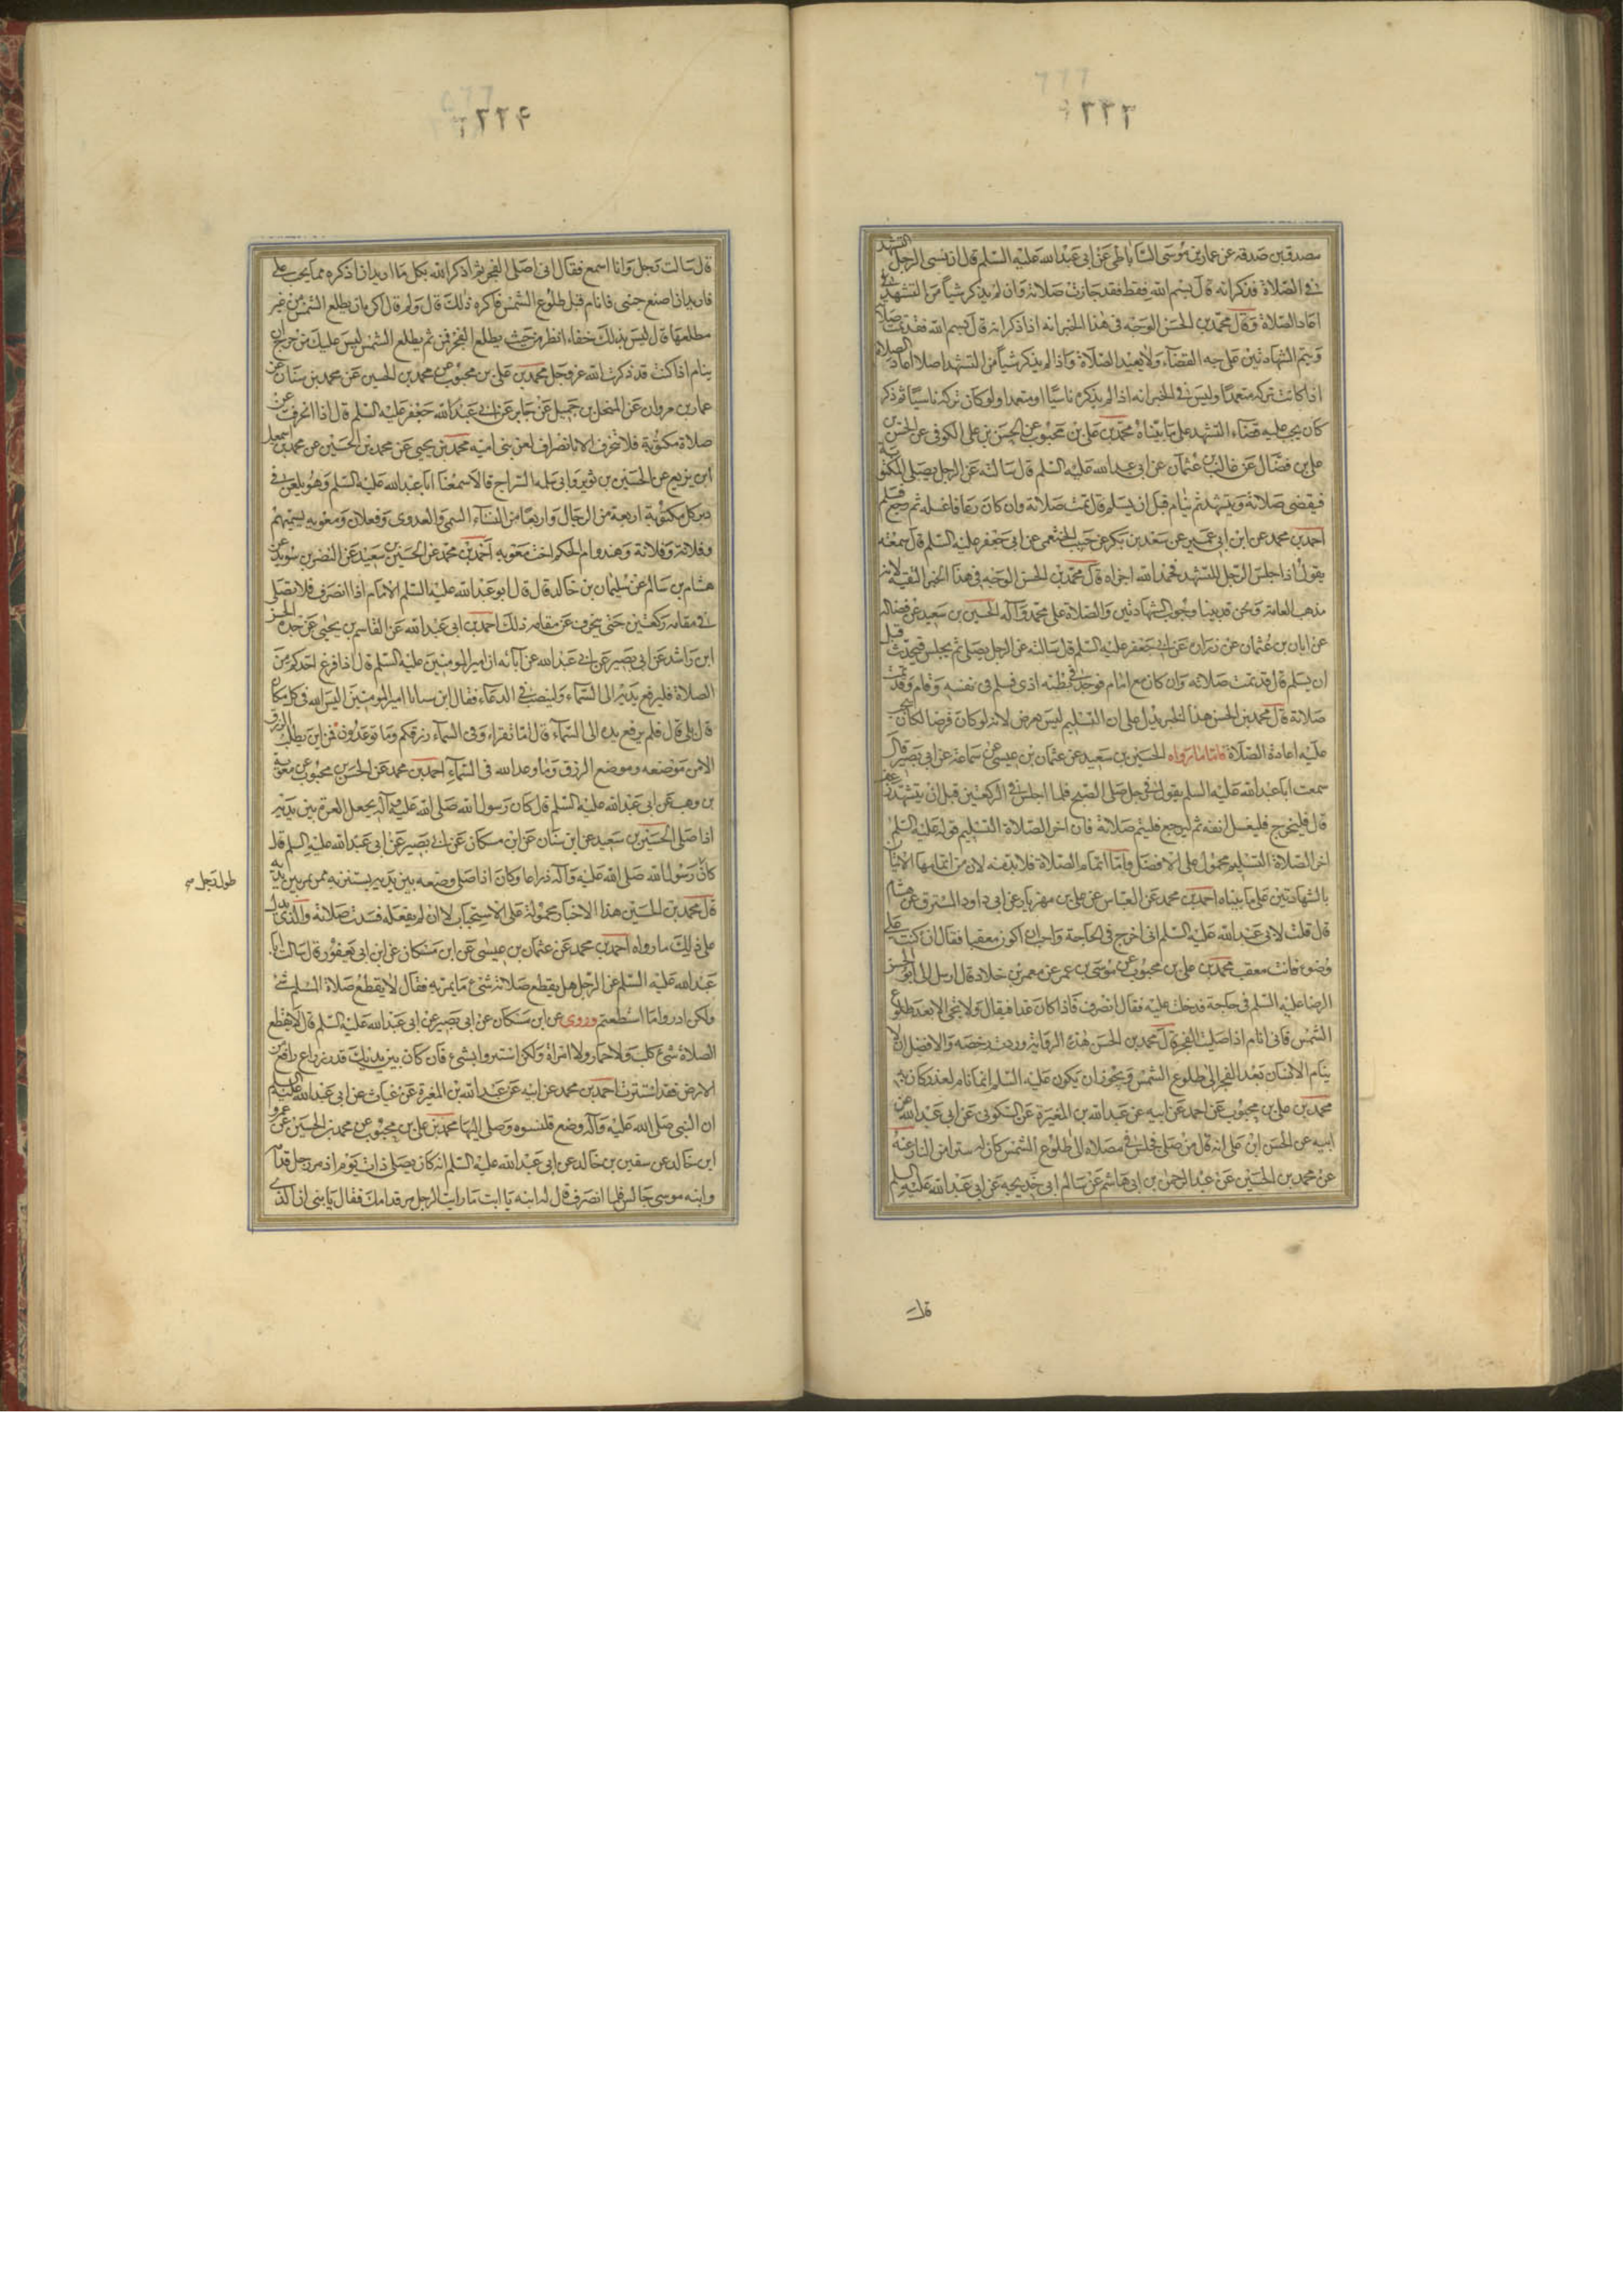 مصدق بن صدقة عن عمار بن موسى الساباطي عن ابي عبد الله عليه السلم قال ان نسى الرجل التشهد
في الصلاة فذكر انه قال بسم الله فقط فقد جازت صلاته وان لم يذكر شيأ من التشهد
اعاد الصلاة وقال محمد بن الحسن الوجه في هذا الخبر انه اذا ذكر انه قال بسم الله فقد تمت صلاته
ويتم الشهادتين على جه القضاء ولا يعيد الصلاة واذا لم يذكر شيأ من التشهد اصلا اعاد الصلاة
اذا كانت تركه متعمدا وليس في الخبر انه اذا لم يذكره ناسيا او متعمدا ولو كان تركه ناسيا ثم ذكر
كان يجب عليه قضاء التشهد على ما بيناه محمد بن علي بن محبوب عن الحسن بن علي الكوفي عن الحسن بن
علي بن فضال عن غالب بن عثمان عن ابي عبد الله عليه السلم قال سالته عن الرجل يصلي المكتوبة
فيقضى صلاته ويتشهد ثم ينام قبل ان يسلم قال تمت صلاته وان كان رعافا غسله ثم رجع فسلم
احمد بن محمد عن ابن ابي عمير عن سعد بن بكر عن حبيب الخثعمي عن ابي جعفر عليه السلم قال سمعته
يقول اذا جلس الرجل للتشهد فحمد الله اجزاه قال محمد بن الحسن الوجه في هذا الخبر التقية لانه
مذهب العامة ونحن قد بينا وجوب الشهادتين والصلاة على محمد وآله الحسين بن سعيد عن فضالة
عن ابان بن عثمان عن زرارة عن ابي جعفر عليه السلم قال سالته عن الرجل يصلي ثم يجلس فيحدث قبل
ان يسلم قال قد تمت صلاته وان كان مع امام فوجد في بطنه اذى فسلم في نفسه وقام فقد تمت
صلاته قال محمد بن الحسن هذا الخبر يدل على ان التسليم ليس بفرض لانه لو كان فرضا لكان
عليه اعادة الصلاة فاما ما رواه الحسين بن سعيد عن عثمان بن عيسى عن سماعة عن ابي بصير قال
سمعت ابا عبد الله عليه السلم يقول في رجل صلى الصبح فلما جلس في الركعتين قبل ان يتشهد رعف
قال فليخرج فليغسل انفه ثم ليرجع فليتم صلاته فان اخر الصلاة التسليم قوله عليه السلم
اخر الصلاة التسليم محمول على الافضل واما اتمام الصلاة فلا بد منه لان من اتمامها الاتيان
بالشهادتين على ما بيناه احمد بن محمد عن العباس عن علي بن مهزيار عن ابي داود المسترق عن هشام
قال قلت لابي عبد الله عليه السلم اني اخرج في الحاجة واحب ان اكون معقبا فقال ان كنت على
وضوء فانت معقب محمد بن علي بن محبوب عن موسى بن عمر عن معمر بن خلاد قال ارسل الي ابو الحسن
الرضا عليه السلم في حاجة فدخلت عليه فقال انصرف فاذا كان غدا فتعال ولا تجئ الا بعد طلوع
الشمس فاني انام اذا صليت الفجر قال محمد بن الحسن هذه الرواية وردت رخصة والافضل ان لا
ينام الانسان بعد الفجر الى طلوع الشمس ويجوز ان يكون عليه السلم انما نام لعذر كان به
محمد بن علي بن محبوب عن احمد عن ابيه عن عبد الله بن المغيرة عن السكوني عن ابي عبد الله عن
ابيه عن الحسن ابن علي انه قال من صلى فجلس في مصلاه الى طلوع الشمس كان له سترا من النار عنه
عن محمد بن الحسين عن عبد الرحمن بن ابي هاشم عن سالم ابي خديجه عن ابي عبد الله عليه السلم
قال
قال سالت رجل وانا اسمع فقال اني اصلي الفجر ثم اذكر الله بكل ما اريد ان اذكره مما يجب على
فاريد ان اضع جنبي فانام قبل طلوع الشمس فاكره ذلك قال ولم قال اكره ان يطلع الشمس من غير
مطلعها قال ليس بذلك خفاء انظر من حيث يطلع الفجر فمن ثم يطلع الشمس ليس عليك من حرج ان
ينام اذا كنت قد ذكرت الله عز وجل محمد بن علي بن محبوب عن محمد بن الحسين عن محمد بن سنان عن
عمار بن مروان عن المنخل بن جميل عن جابر عن ابي عبد الله جعفر عليه السلم قال اذا انحرفت عن
صلاة مكتوبة فلا تنحرف الا بانصراف لعن بني اميه محمد بن يحيى عن محمد بن الحسين عن محمد بن اسمعيل
ابن بزيع عن الحسين بن ثوير وابي سلمه السراج قالا سمعنا ابا عبد الله عليه السلم وهو يلعن في
دبر كل مكتوبة اربعة من الرجال واربعا من النساء التيمي والعدوى وفعلان ومعوية يسميهم
وفلانة وفلانة وهند وام الحكم اخت معوية احمد بن محمد عن الحسين بن سعيد عن النضر بن سويد عن
هشام بن سالم عن سليمان بن خالد قال قال ابو عبد الله عليه السلم الامام اذا انصرف فلا يصلي
في مقامه ركعتين حتى ينحرف عن مقامه ذلك احمد بن ابي عبد الله عن القاسم بن يحيى عن جده الحسن
ابن راشد عن ابي بصير عن ابي عبد الله عن آبائه ان امير المومنين عليه السلم قال اذا فرغ احدكم من
الصلاة فليرفع يديه الى السماء ولينصب في الدعاء فقال ابن سبا يا امير المومنين اليس الله في كل مكان
قال بلى قال فلم يرفع يديه الى السماء قال اما تقراء وفى السماء رزقكم وما توعدون فمن اين يطلب الرزق
الا من موضعه وموضع الرزق وما وعد الله في السماء احمد بن محمد عن الحسن بن محبوب عن معوية
بن وهب عن ابي عبد الله عليه السلم قال كان رسول الله صلى الله عليه وآله يجعل العنزة بين يديه
اذا صلى الحسين بن سعيد عن ابن سنان عن ابن مسكان عن ابي بصير عن ابي عبد الله عليه السلم قال
كان رسول الله صلى الله عليه وآله ذراعا وكان اذا صلى وضعه بين يديه يستتر به ممن يمر بين يديه
طول رحل
قال محمد بن الحسين هذا الاخبار محمولة على الاستحباب لا ان لم يفعله فسدت صلاته والذي يدل
على ذلك ما رواه احمد بن محمد عن عثمان بن عيسى عن ابن مسكان عن ابن ابي يعفور قال سالت ابا
عبد الله عليه السلم عن الرجل هل يقطع صلاته شئ مما يمر به فقال لا يقطع صلاة المسلم شئ
ولكن ادروا ما استطعتم وروى عن ابن مسكان عن ابي بصير عن ابي عبد الله عليه السلم قال لا يقطع
الصلاة شئ كلب ولا حمار ولا امراة ولكن استتروا بشئ فان كان بين يديك قدر ذراع رافع من
الارض فقد استترت احمد بن محمد عن ابيه عن عبد الله بن المغيرة عن غياث عن ابي عبد الله عليه السلم
ان النبي صلى الله عليه وآله وضع قلنسوه وصلى اليها محمد بن علي بن محبوب عن محمد بن الحسين عن عمرو
ابن خالد عن سفين بن خالد عن ابي عبد الله عليه السلم انه كان يصلي ذات يوم اذ مر رجل قدامه
وابنه موسى جالس فلما انصرف قال له ابنه يا ابت ما رايت الرجل مر قدامك فقال يا بني ان الذي